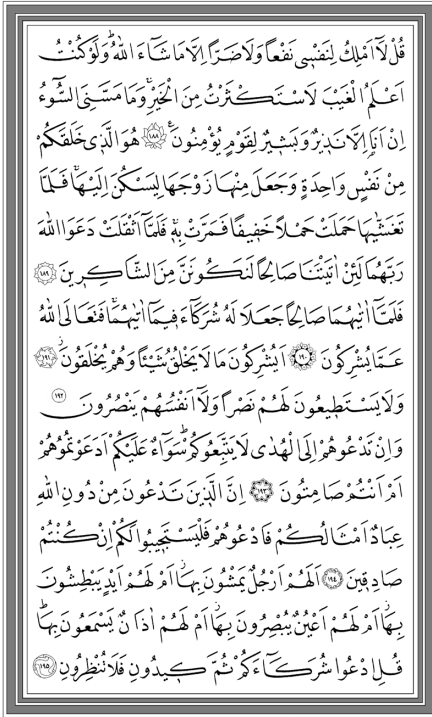 قُلْ لَٓا اَمْلِكُ لِنَفْسٖى نَفْعاً وَلَا ضَراًّ اِلَّا مَا شَٓاءَ اللّٰهُ وَلَوْ كُنْتُ
اَعْلَمُ الْغَيْبَ لَاسْتَكْثَرْتُ مِنَ الْخَيْرِ وَمَا مَسَّنِىَ السُّٓوءُ
اِنْ اَنَا اِلَّا نَذٖيرٌ وَبَشٖيرٌ لِقَوْمٍ يُؤْمِنُونَ ﴿١٨٨﴾ هُوَ الَّذٖى خَلَقَكُمْ
مِنْ نَفْسٍ وَاحِدَةٍ وَجَعَلَ مِنْهَا زَوْجَهَا لِيَسْكُنَ اِلَيْهَا فَلَمَّا
تَغَشّٰيهَا حَمَلَتْ حَمْلاً خَفٖيفاً فَمَرَّتْ بِهٖ فَلَمَّٓا اَثْقَلَتْ دَعَوَا اللّٰهَ
رَبَّهُمَا لَئِنْ اٰتَيْتَنَا صَالِحاً لَنَكُونَنَّ مِنَ الشَّاكِرٖينَ ﴿١٨٩﴾
فَلَمَّٓا اٰتٰيهُمَا صَالِحاً جَعَلَا لَهُ شُرَكَٓاءَ فٖيمَٓا اٰتٰيهُمَا فَتَعَالَى اللّٰهُ
عَمَّا يُشْرِكُونَ ﴿١٩٠﴾ اَيُشْرِكُونَ مَا لَا يَخْلُقُ شَيْـٔاً وَهُمْ يُخْلَقُونَ ﴿١٩١﴾
وَلَا يَسْتَطٖيعُونَ لَهُمْ نَصْراً وَلَٓا اَنْفُسَهُمْ يَنْصُرُونَ ﴿١٩٢﴾
وَاِنْ تَدْعُوهُمْ اِلَى الْهُدٰى لَا يَتَّبِعُوكُمْ سَوَٓاءٌ عَلَيْكُمْ اَدَعَوْتُمُوهُمْ
اَمْ اَنْتُمْ صَامِتُونَ ﴿١٩٣﴾ اِنَّ الَّذٖينَ تَدْعُونَ مِنْ دُونِ اللّٰهِ
عِبَادٌ اَمْثَالُكُمْ فَادْعُوهُمْ فَلْيَسْتَجٖيبُوا لَكُمْ اِنْ كُنْتُمْ
صَادِقٖينَ ﴿١٩٤﴾ اَلَهُمْ اَرْجُلٌ يَمْشُونَ بِهَٓا اَمْ لَهُمْ اَيْدٍ يَبْطِشُونَ
بِهَٓا اَمْ لَهُمْ اَعْيُنٌ يُبْصِرُونَ بِهَٓا اَمْ لَهُمْ اٰذَانٌ يَسْمَعُونَ بِهَا
قُلِ ادْعُوا شُرَكَٓاءَكُمْ ثُمَّ كٖيدُونِ فَلَا تُنْظِرُونِ ﴿١٩٥﴾